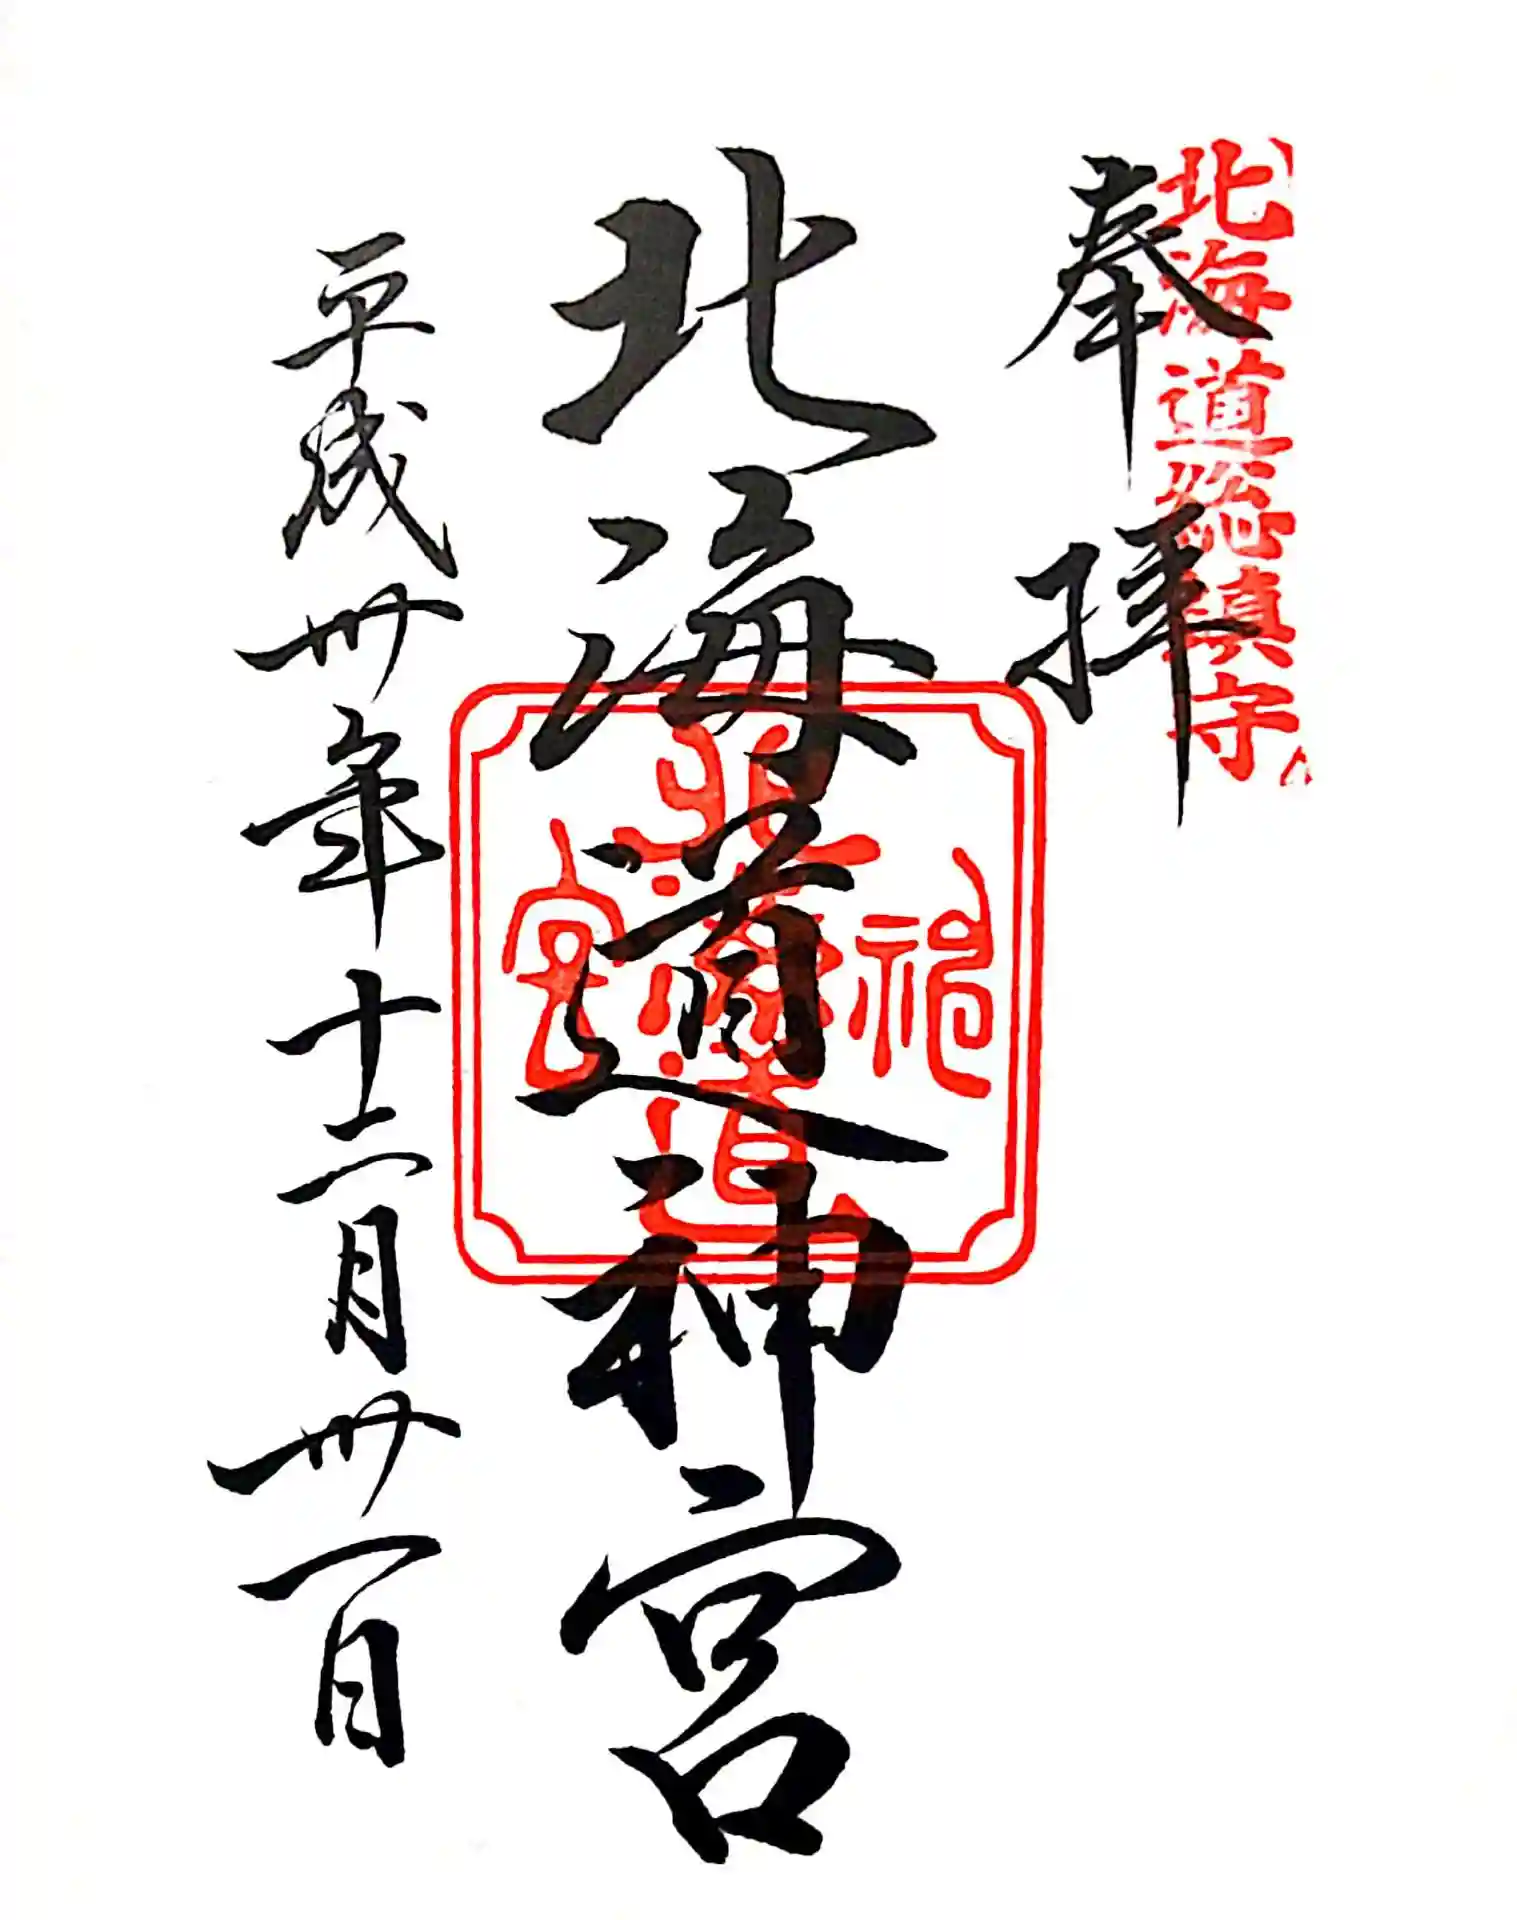 北海道総鎮守
奉拝
北海道神宮
北海道神宮
平成卅年十二月卅一日